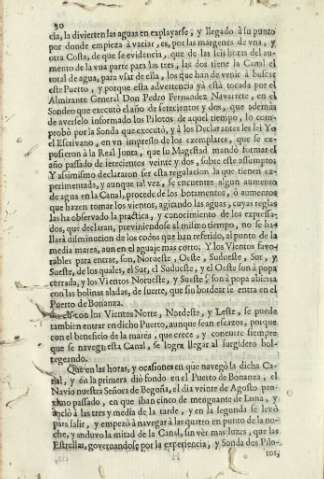 30
cia, la divierten las aguas en explayarse, y llegado à su punto
por donde empieza à vaciar, es, por las margenes de vna, y
otra Costa, de que se evidencia, que de las seis horas del au-
mento de la vna parte para las tres, las dos tiene la Canal el
total de agua, para vsar de ella, los que han de venir à buscar
este Puerto, y porque esta advertencia yà està tocada por el
Almirante General Don Pedro Fernandez Navarrete, en el
Sondeo que executò el año de setecientos y dos, que además
de averselo informado los Pilotos de aquel tiempo, lo com-
probò por la Sonda que executò, y à los Declarantes les leì Yo
el Escrivano, en vn impresso de los exemplares, que se ex-
pusieron à la Real Junta, que su Magestad mandò formar el
año passado de setecientos veinte y dos, sobre este assumpto;
Y assimismo declararon ser esta regulacion la que tienen ex-
perimentada, y aunque tal vez, se encuentre algun aumento
de agua en la Canal, procede de los botamentos, ò aumentos
que hazen tomar los vientos, agitando las aguas, cuyas reglas
las ha observado la practica, y conocimiento de los expressa-
dos, que declaran, previniendose al mismo tiempo, no se ha-
llarà disminucion de los codos que han referido, al punto de la
media marea, aun en el aguaje mas corto; Y los Vientos favo-
rables para entrar, son, Norueste, Oeste, Sudueste, Sur, y
Sueste, de los quales, el Sur, el Sudueste, y el Oeste son à popa
cerrada, y los Vientos Norueste, y Sueste, son à popa abierta
con las bolinas aladas, de suerte, que sin bordear se entra en el
Puerto de Bonanza.
con los Vientos Norte, Nordeste, y Leste, se puede
tambien entrar en dicho Puerto, aunque sean escasos, porque
con el beneficio de la marea, que crece, y conteste siempre
que se navegue esta Canal, se logra llegar al surgidero bol-
tegeando.
Que en las horas, y ocasiones en que navegò la dicha Ca-
nal, y en la primera diò fondo en el Puerto de Bonanza, el
Navio nuestra Señora de Begoña, el dia veinte de Agosto pro-
ximo passado, en que iban cinco de menguante de Luna, y
anclò à las tres y media de la tarde, y en la segunda se levò
para salir, y empezò à navegar à las quatro en punto de la no-
che, y anduvo la mitad de la Canal, sin vèr mas luzes, que las
Estrellas, governandose por la experiencia, y Sonda dos Pilo-
tos,